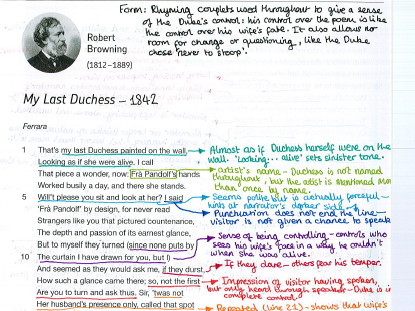 Form: Rhyming couplets used throughout to give a sense
of the Duke's control: his control over the poem is like
the control over his wife's fate. It also allows no
room for change or questioning, like the Duke
chose 'never to stoop'.
Robert
Browning
(1812–1889)
My Last Duchess – 1842
Ferrara
1 That's my last Duchess painted on the wall,
Looking as if she were alive. I call
That piece a wonder, now: Frà Pandolf's hands
Worked busily a day, and there she stands.
5 Will't please you sit and look at her? I said
'Frà Pandolf' by design, for never read
Strangers like you that pictured countenance,
The depth and passion of its earnest glance,
But to myself they turned (since none puts by
10 The curtain I have drawn for you, but I)
And seemed as they would ask me, if they durst,
How such a glance came there; so, not the first
Are you to turn and ask thus. Sir, 'twas not
Her husband's presence only, called that spot
Almost as if Duchess herself were on the
wall. 'Looking... alive' sets sinister tone.
Artist's name – Duchess is not named
throughout, but the artist is mentioned more
than once by name.
Seems polite but is actually forceful –
hints at narrator's darker side
Punctuation does not end the line –
visitor is not given a chance to speak
Sense of being controlling – controls who
sees his wife's face in a way he couldn't
when she was alive.
If they dare – others fear his temper.
Impression of visitor having spoken,
but only heard through speaker – Duke is in
complete control.
Repeated (line 21) – shows that wife's